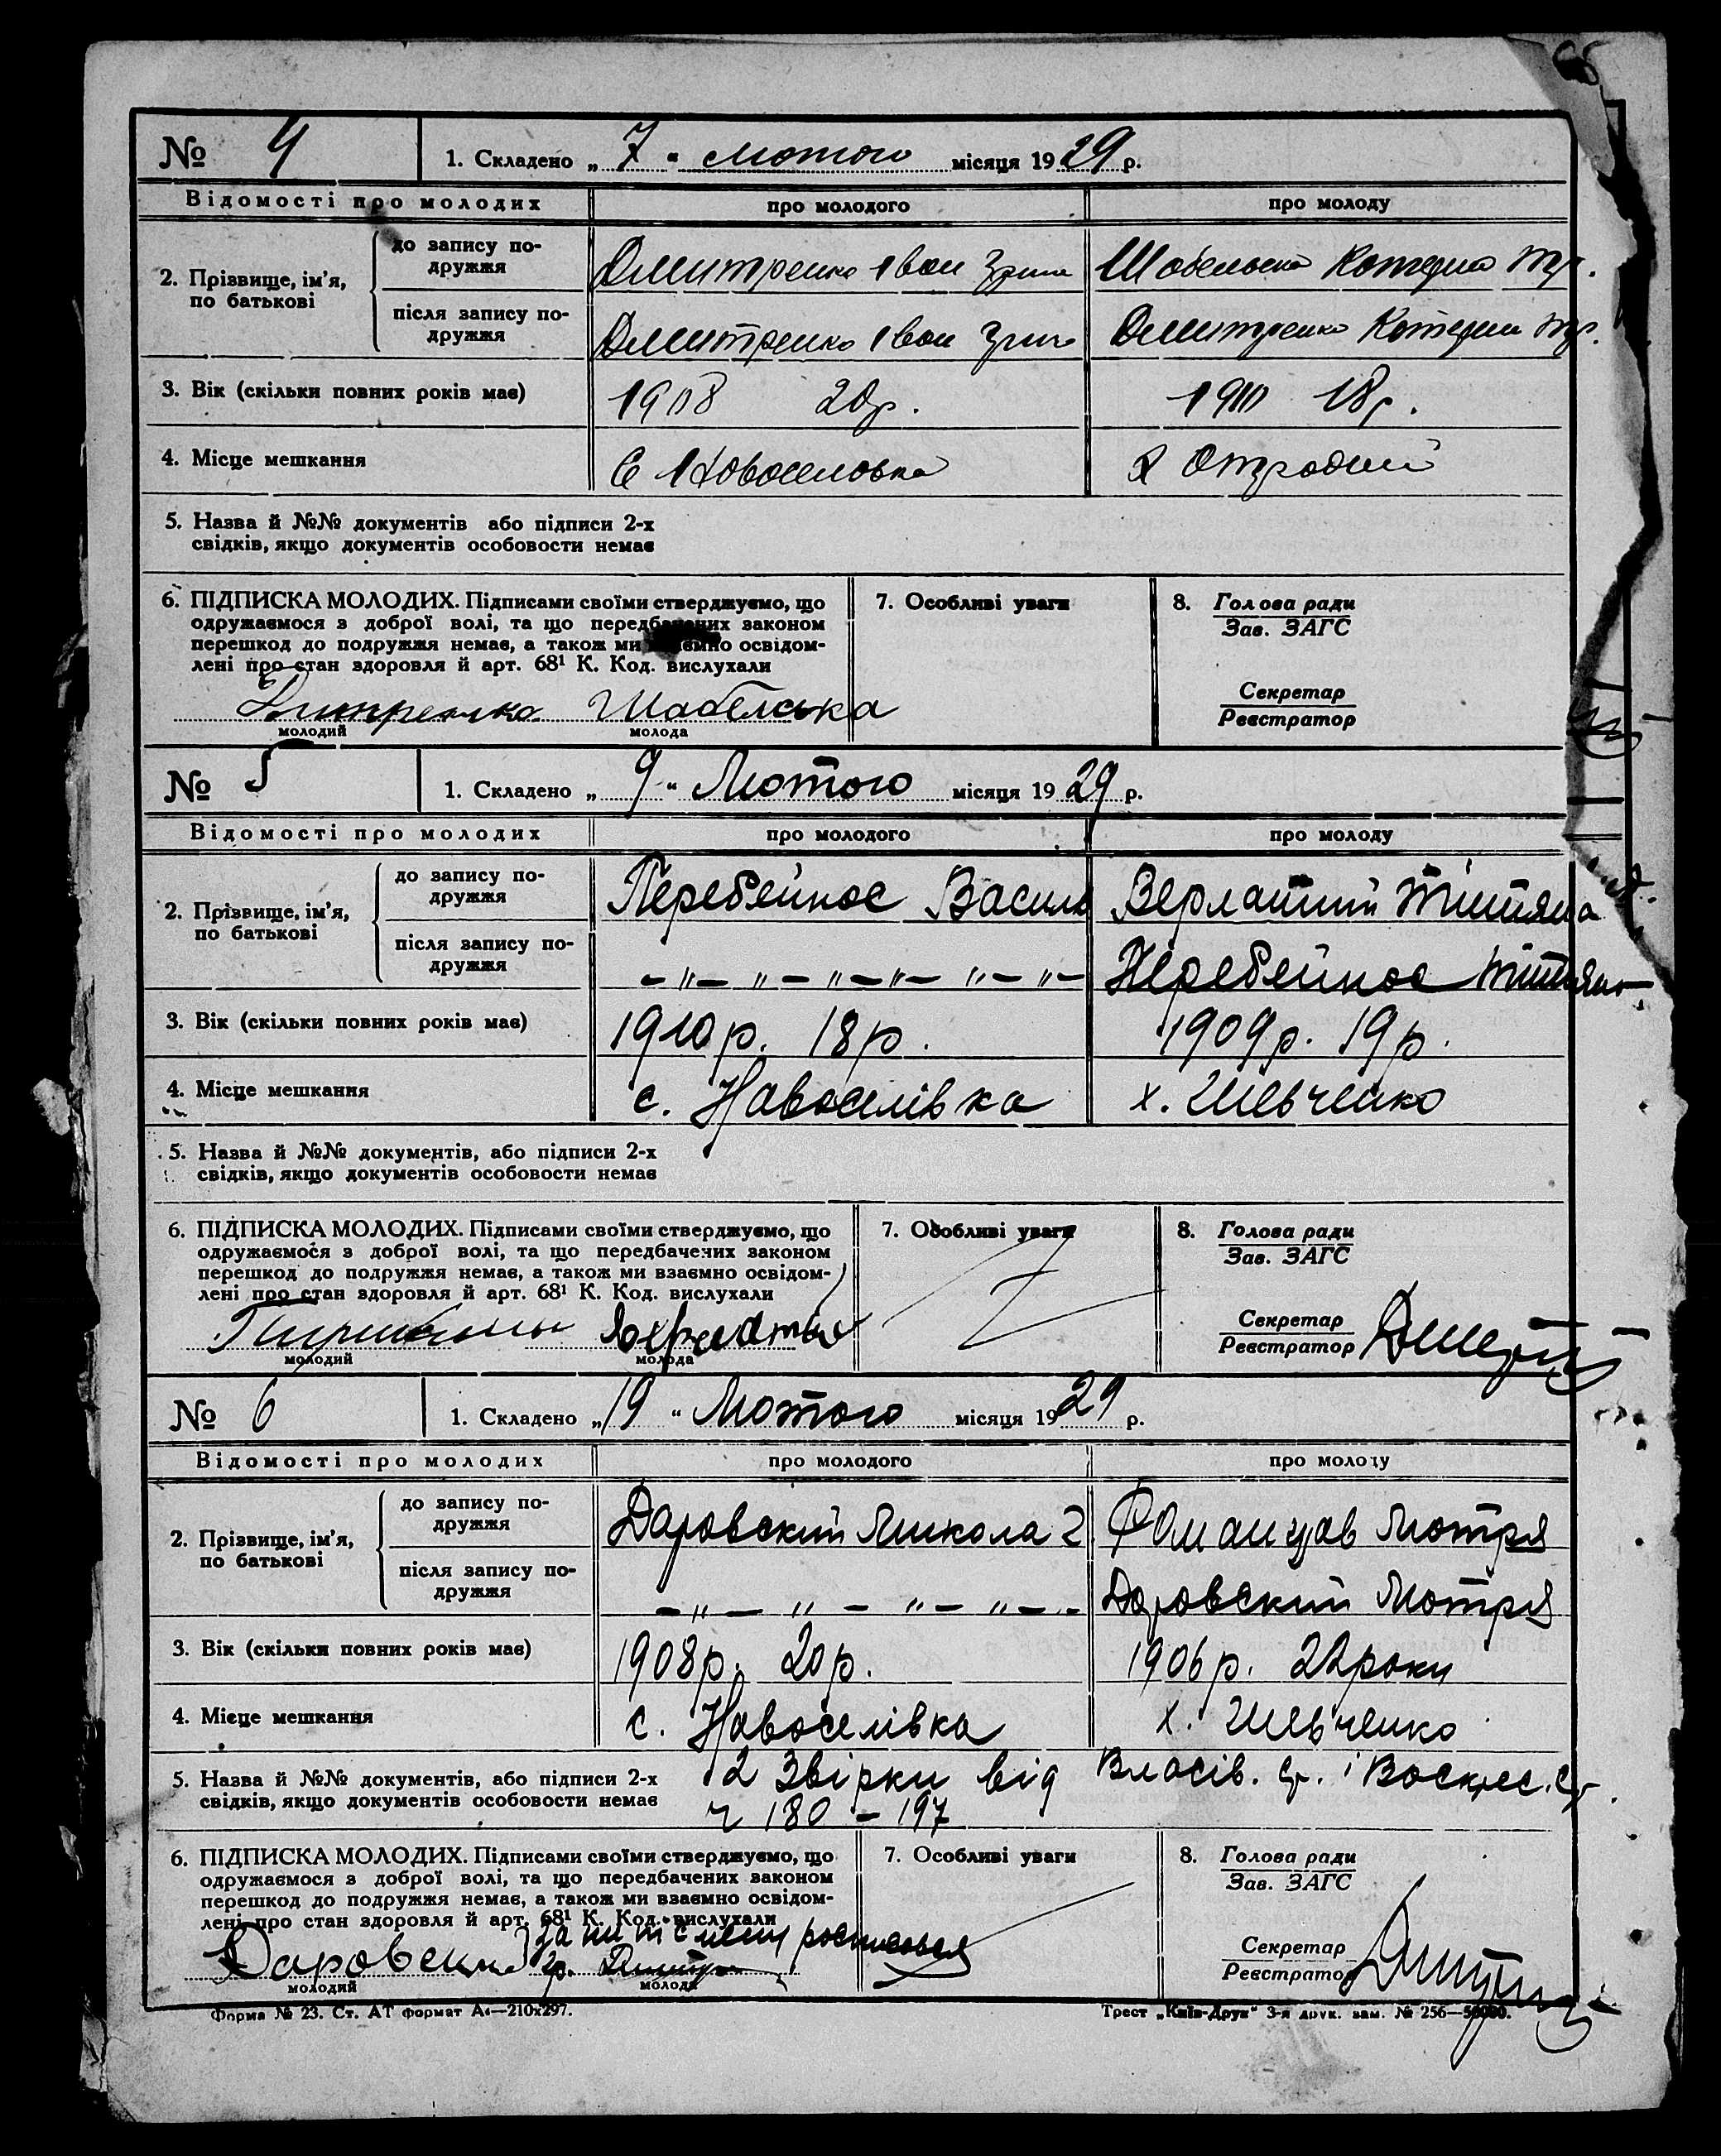 № 4 1. Складено „ 7 “ лютого місяця 1929 р.
Відомості про молодих про молодого про молоду
2. Прізвище, ім’я, по батькові
до запису подружжя Дмитренко Іван Шабельська Катерина
після запису подружжя Дмитренко Іван Дмитренко Катерина
3. Вік (скільки повних років має) 1908 20р. 1910 18р.
4. Місце мешкання С Новоселовка Х Отрадний
5. Назва й №№ документів або підписи 2-х
свідків, якщо документів особовости немає
6. ПІДПИСКА МОЛОДИХ. Підписами своїми стверджуємо, що
одружаємося з доброї волі, та що передбачених законом
перешкод до подружжя немає, а також ми взаємно освідом-
лені про стан здоровля й арт. 68¹ К. Код. вислухали
Дмитренко Шабельска
молодий молода
7. Особливі уваги
8. Голова ради
Зав. ЗАГС
Секретар
Реєстратор
№ 5 1. Складено „ 9 “ Лютого місяця 1929 р.
Відомості про молодих про молодого про молоду
2. Прізвище, ім’я, по батькові
до запису подружжя Перебейнос Василь
після запису подружжя -"- "-"-"- "-"- Перебейнос
3. Вік (скільки повних років має) 1910р. 18р. 1909р. 19р.
4. Місце мешкання с. Новоселівка х. Шевченко
5. Назва й №№ документів, або підписи 2-х
свідків, якщо документів особовости немає
6. ПІДПИСКА МОЛОДИХ. Підписами своїми стверджуємо, що
одружаємося з доброї волі, та що передбачених законом
перешкод до подружжя немає, а також ми взаємно освідом-
лені про стан здоровля й арт. 68¹ К. Код. вислухали
молодий молода
7. Особливі уваги
8. Голова ради
Зав. ЗАГС
Секретар
Реєстратор
№ 6 1. Складено „ 19 “ Лютого місяця 1929 р.
Відомості про молодих про молодого про молоду
2. Прізвище, ім’я, по батькові
до запису подружжя Даровский Микола Г. Мотря
після запису подружжя -"- "- "- "-"- Даровский Мотря
3. Вік (скільки повних років має) 1908р. 20р. 1906р. 22роки
4. Місце мешкання с. Новоселівка х. Шевченко
5. Назва й №№ документів, або підписи 2-х 2 Звірки від Власів. с/р. і Воскрес. с/р.
свідків, якщо документів особовости немає ч 180 – 197
6. ПІДПИСКА МОЛОДИХ. Підписами своїми стверджуємо, що
одружаємося з доброї волі, та що передбачених законом
перешкод до подружжя немає, а також ми взаємно освідом-
лені про стан здоровля й арт. 68¹ К. Код. вислухали
Даровский
молодий молода
7. Особливі уваги
8. Голова ради
Зав. ЗАГС
Секретар
Реєстратор
Форма № 23. Ст. АТ формат А₄—210х297. Трест „Київ-Друк“ 3-я друк. зам. № 256—50000.